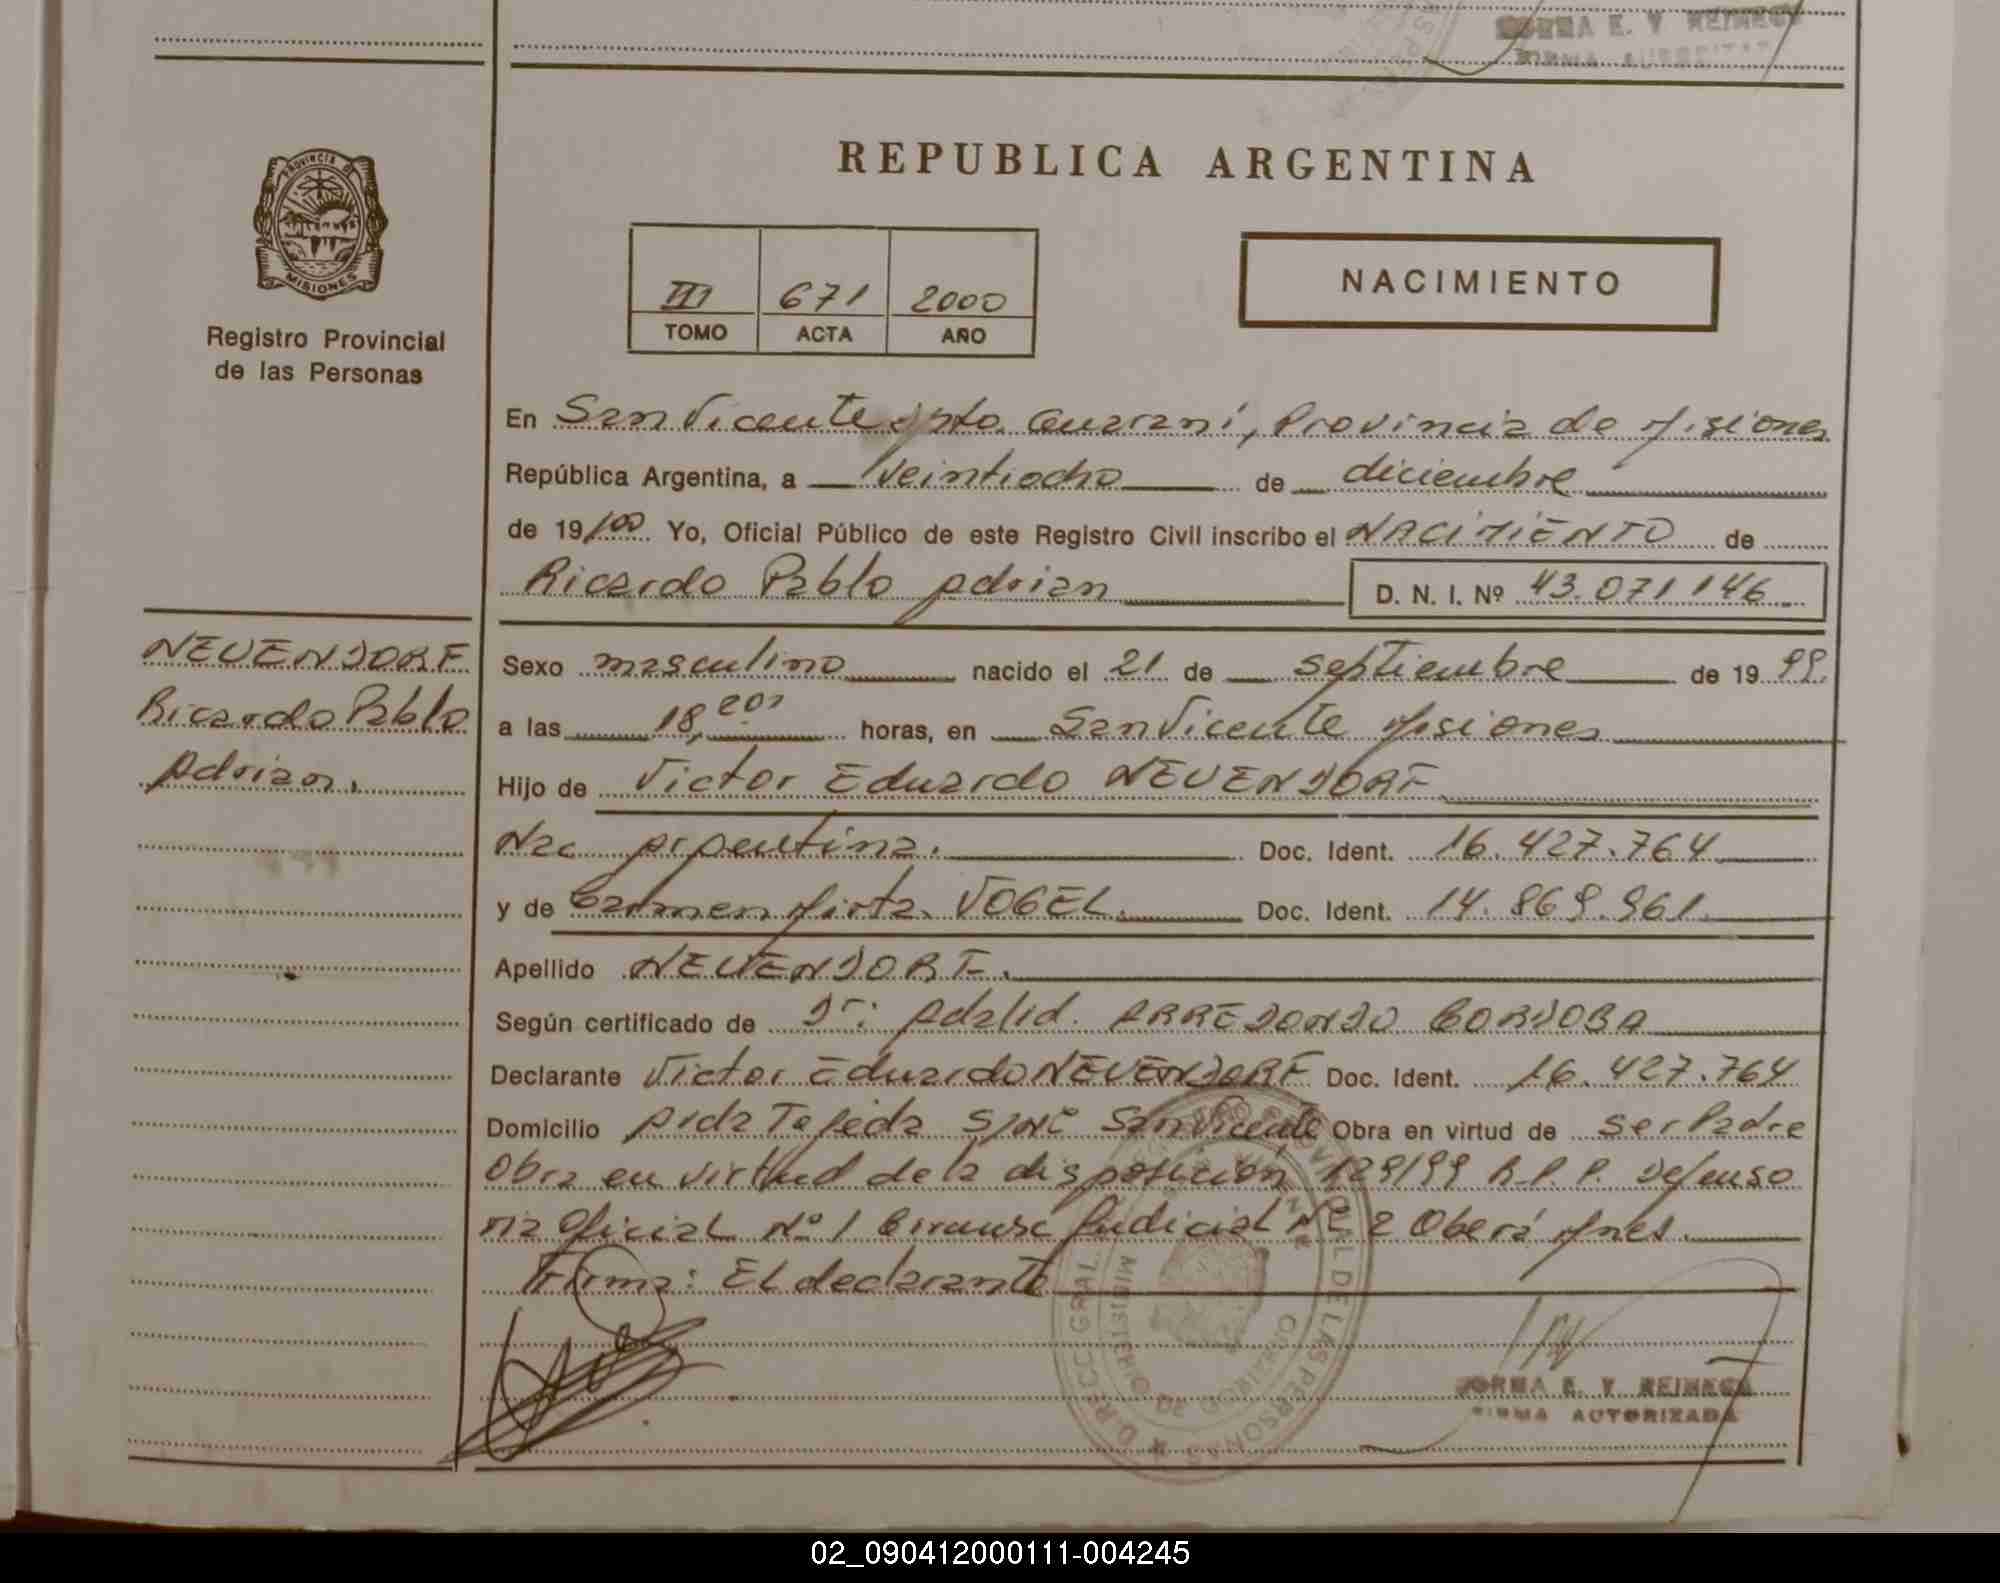 NORMA E. V. REINECK
FIRMA AUTORIZADA
PROVINCIA DE
MISIONES
Registro Provincial
de las Personas
REPUBLICA ARGENTINA
III 671 2000
TOMO ACTA AÑO
NACIMIENTO
En San Vicente Dpto. Guaraní, Provincia de Misiones
República Argentina, a veintiocho de diciembre
de 19/00 Yo, Oficial Público de este Registro Civil inscribo el NACIMIENTO de
Ricardo Pablo Adrian D. N. I. Nº 43.071.146
NEUENDORF
Ricardo Pablo
Adrian.
Sexo masculino nacido el 21 de septiembre de 1999.
a las 18,20 horas, en San Vicente Misiones
Hijo de Victor Eduardo NEUENDORF
Nac argentina. Doc. Ident. 16.427.764
y de Carmen Mirta VOGEL. Doc. Ident. 14.869.961
Apellido NEUENDORF.
Según certificado de Dr: Adalid. ARREDONDO CORDOBA
Declarante Victor Eduardo NEUENDORF Doc. Ident. 16.427.764
Domicilio Avda Tejeda S/Nº San Vicente Obra en virtud de ser Padre
Obra en virtud de la disposición 129/99 R.P.P. Defenso
ria Oficial Nº 1 Circunsc Judicial Nº 2 Oberá Mnes.
Firma: El declarante
NORMA E. V. REINECK
FIRMA AUTORIZADA
02_090412000111-004245